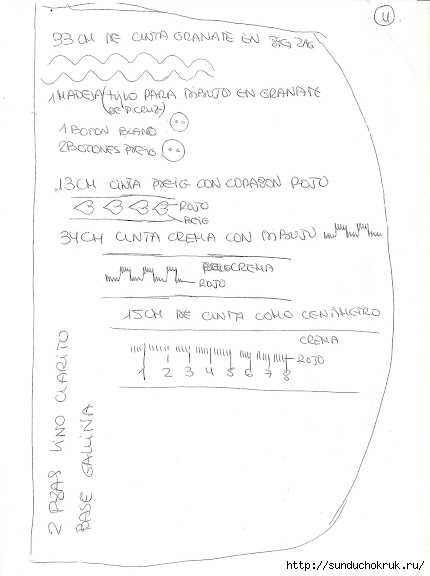 4
93CM DE CINTA GRANATE EN ZIG ZAG
1 MADEJA (HILO PARA DIBUJO EN GRANATE
DE P.CRUZ)
1 BOTON BLANO
2 BOTONES BEIG
13CM CINTA BEIG CON CORAZON ROJO
ROJO
BEIG
34CM CINTA CREMA CON DIBUJO
CREMA
ROJO
15CM DE CINTA COMO CENTIMETRO
CREMA
ROJO
1 2 3 4 5 6 7 8
2 PZAS LINO CLARITO
BASE GALLINA
http://sunduchokruk.ru/